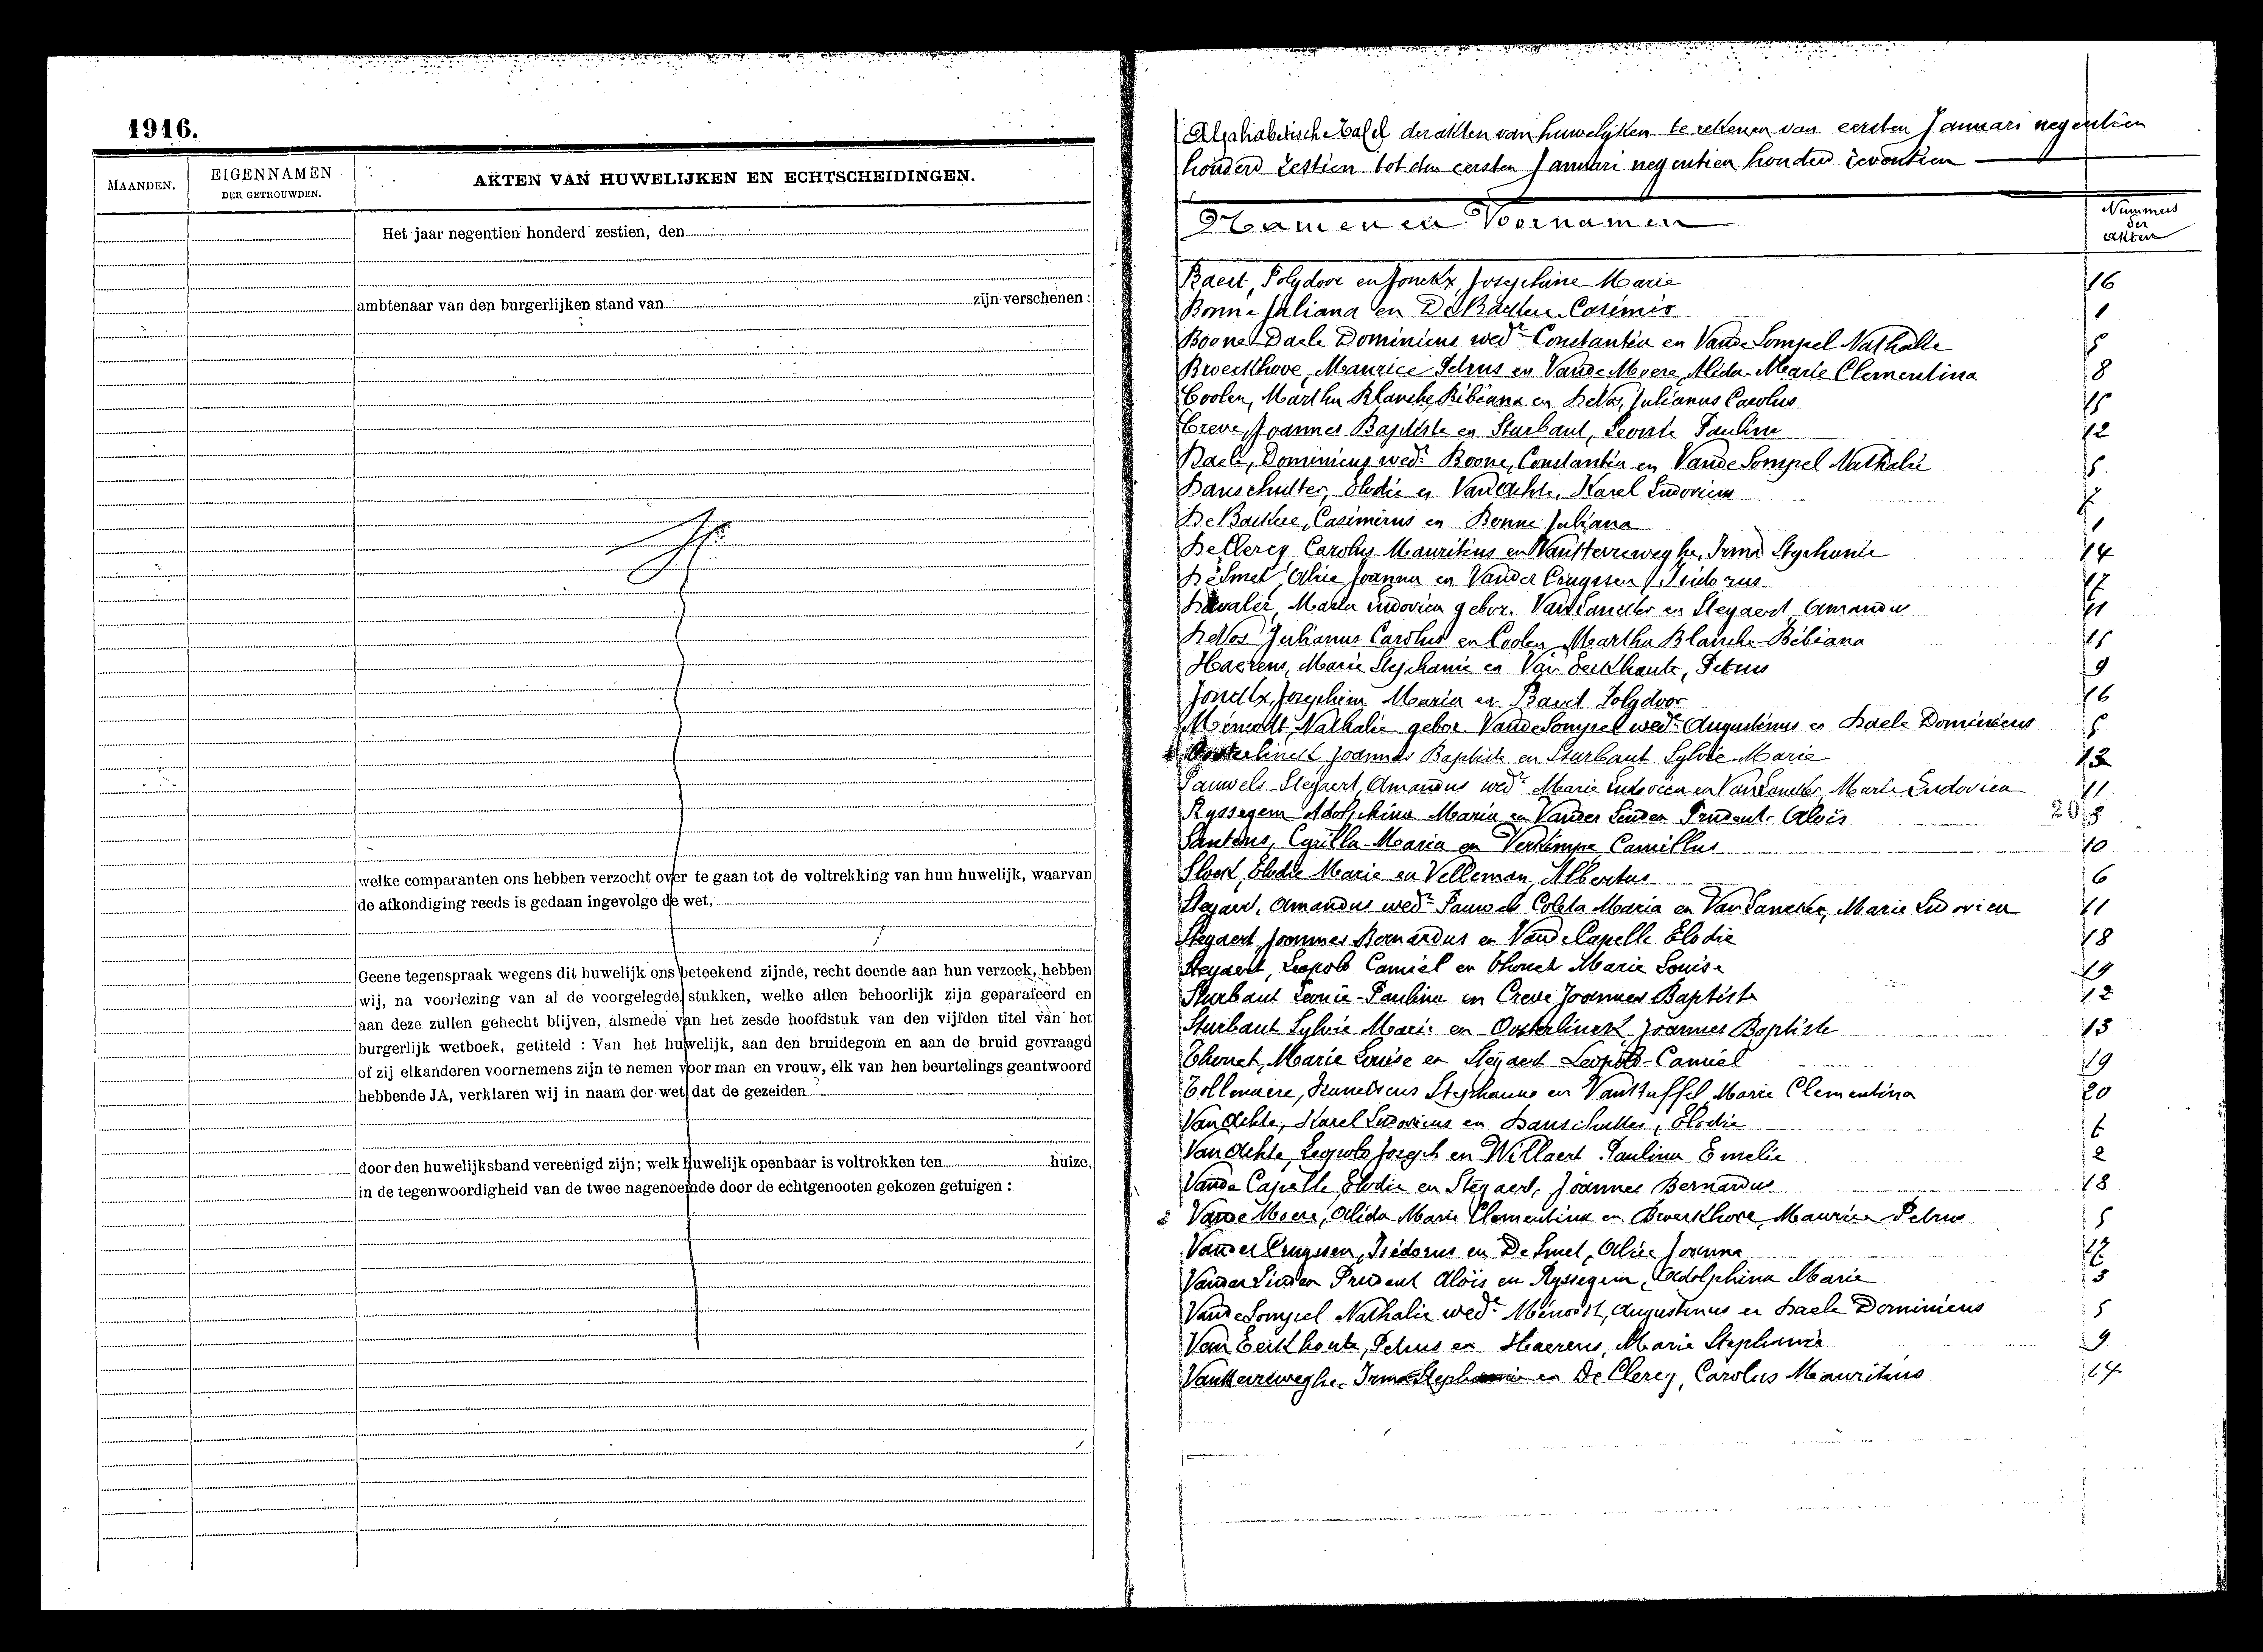 1916.
MAANDEN.
EIGENNAMEN
DER GETROUWDEN.
AKTEN VAN HUWELIJKEN EN ECHTSCHEIDINGEN.
Het jaar negentien honderd zestien, den
ambtenaar van den burgerlijken stand van zijn verschenen :
welke comparanten ons hebben verzocht over te gaan tot de voltrekking van hun huwelijk, waarvan
de afkondiging reeds is gedaan ingevolge de wet,
Geene tegenspraak wegens dit huwelijk ons beteekend zijnde, recht doende aan hun verzoek, hebben
wij, na voorlezing van al de voorgelegde stukken, welke allen behoorlijk zijn geparafeerd en
aan deze zullen gehecht blijven, alsmede van het zesde hoofdstuk van den vijfden titel van het
burgerlijk wetboek, getiteld : Van het huwelijk, aan den bruidegom en aan de bruid gevraagd
of zij elkanderen voornemens zijn te nemen voor man en vrouw, elk van hen beurtelings geantwoord
hebbende JA, verklaren wij in naam der wet dat de gezeiden
door den huwelijksband vereenigd zijn; welk huwelijk openbaar is voltrokken ten huize,
in de tegenwoordigheid van de twee nagenoemde door de echtgenooten gekozen getuigen :
Alphabetische tafel der akten van huwelijken te rekenen van eersten Januari negentien
honderd zestien tot den eersten Januari negentien honderd zeventien
Namen en Voornamen
Nummers der akten
Baert, Polydoor en Jonckx, Josephine Marie 16
Bonne Juliana en De Backere Casimir 1
Boone Daele Dominicus wedr Constantia en Vande Sompel Nathalie 5
Bweekhove, Maurice Petrus en Vande Moere, Alida Marie Clementina 8
Coolen, Martha Blanche Bibiana en De Vos, Julianus Carolus 15
Creve, Joannes Baptiste en Sturbaut, Leonie Pauline 12
Daele, Dominicus wedr Boone, Constantia en Vande Sompel Nathalie 5
Danschutter, Elodie en Van Achte, Karel Ludovicus
De Backere, Casimirus en Bonne Juliana 1
De Clercq Carolus Mauritius en Vankerreweghe, Irma Stephanie 14
De Smet Alice Joanna en Vander Cruyssen Isidorus 17
Maria Ludovica gebor. Van Lancker en Steyaert Amandus 11
De Vos Julianus Carolus en Coolen Martha Blanche Bibiana 15
Haerens, Marie Stephanie en Van Eeckhoute, Petrus 9
Jonckx, Josephina Maria en Baert Polydoor 16
Nathalie gebor. Vande Sompel wedr Augustinus en Daele Dominicus 5
Oosterlinck Joannes Baptiste en Sturbaut Sylvie Marie 13
Pauwels Steyaert, Amandus wedr Marie Ludovica en Van Lancker, Marie Ludovica 11
Ryssegem Adolphina Maria en Vander Linden Prudent Aloïs
Santens, Cyrilla Maria en Verkimpe Camillus 10
Slock, Elodie Marie en Velleman, Albertus 6
Steyaert, Amandus wedr Pauwels Coleta Maria en Van Lancker, Marie Ludovica 11
Steyaert, Joannes Bernardus en Vande Capelle Elodie 18
Steyaert, Leopold Camiel en Thouet Marie Louise 19
Sturbaut Leonie-Paulina en Creve Joannes Baptiste 12
Sturbaut Sylvie Marie en Oosterlinck Joannes Baptiste 13
Thouet, Marie Louise en Steyaert Leopold-Camiel 19
Tollenaere, Stephanus en Van Stuffel Marie Clementina 20
Van Achte, Karel Ludovicus en Danschutter, Elodie
Van Achte, Leopold Joseph en Willaert Paulina Emelie 2
Vande Capelle Elodie en Steyaert, Joannes Bernardus 18
Vande Moere, Alida Marie Clementina en Bweekhove, Maurice Petrus
Vander Cruyssen, Isidorus en De Smet, Alice Joanna 17
Vander Linden Prudent Aloïs en Ryssegem, Adolphina Marie 3
Vande Sompel Nathalie wede Augustinus en Daele Dominicus 5
Van Eeckhoute, Petrus en Haerens, Marie Stephanie 9
Vankerreweghe, Irma Stephanie en De Clercq, Carolus Mauritius 14